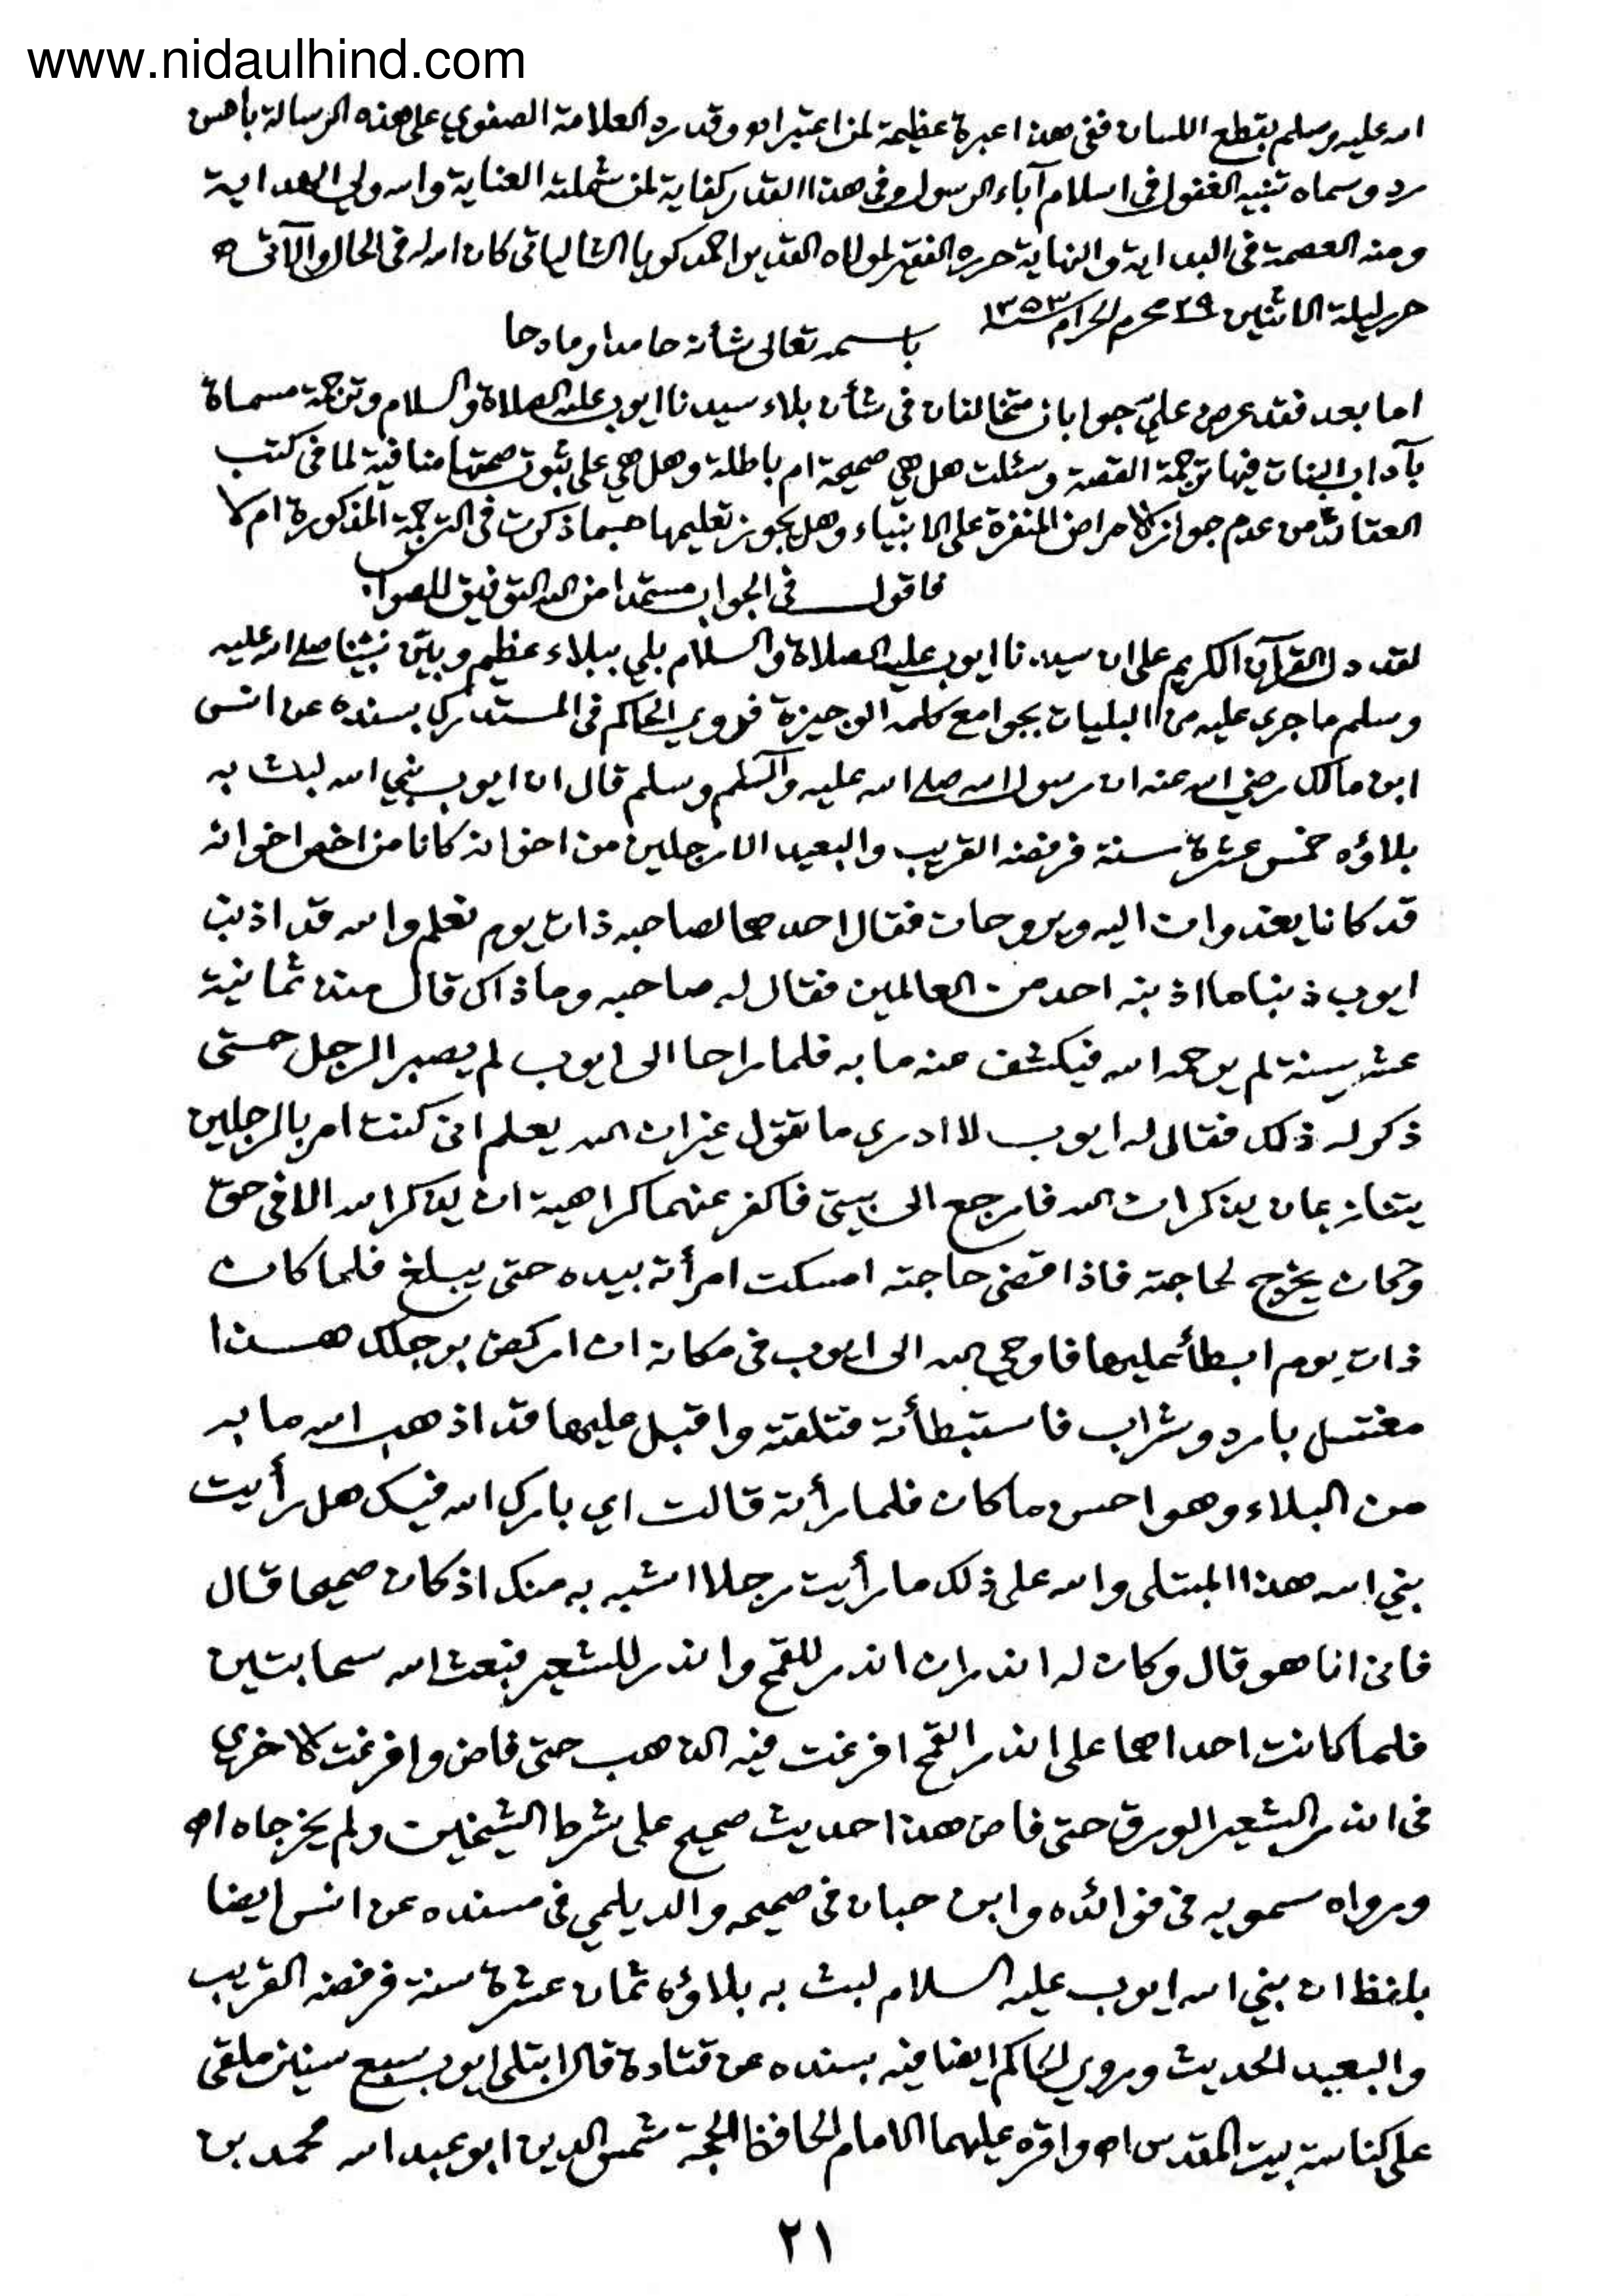 www.nidaulhind.com
الله عليه وسلم بقطع اللسان ففي هذا عبرة عظيمة لمن اعتبر اه وقد رد العلامة الصفوي على هذه الرسالة باحسن
رد وسماه تنبيه الغفول في اسلام آباء الرسول وفي هذا القدر كفاية لمن شملته العناية والله ولي الهداية
ومنه العصمة في البداية والنهاية حرره الفقير لمولاه القدير احمد كويا الشالياتي كان الله له في الحال والآتي اه
حرر ليلة الاثنين ٢٩ محرم الحرام سنة ١٣٥٣
باسمه تعالى شأنه حامدا ومادحا
اما بعد فقد عرض علي جوابان متخالفان في شأن بلاء سيدنا ايوب عليه الصلاة والسلام وترجمة مسماة
بآداب البنات فيها ترجمة القصة وسئلت هل هي صحيحة ام باطلة وهل هي على ثبوت صحتها منافية لما في كتب
العقائد من عدم جواز الامراض المنفرة على الانبياء وهل يجوز تعليمها حسبما ذكرت في الترجمة المذكورة ام لا
فاقول في الجواب مستمدا من الله التوفيق للصواب
لقد دل القرآن الكريم على ان سيدنا ايوب عليه الصلاة والسلام بلي ببلاء عظيم وبين نبينا صلى الله عليه
وسلم ما جرى عليه من البليات بجوامع كلمه الوجيزة فروى الحاكم في المستدرك بسنده عن انس
ابن مالك رضي الله عنه ان رسول الله صلى الله عليه وآله وسلم قال ان ايوب نبي الله لبث به
بلاؤه خمس عشرة سنة فرفضه القريب والبعيد الا رجلين من اخوانه كانا من اخص اخوانه
قد كانا يغدوان اليه ويروحان فقال احدهما لصاحبه ذات يوم تعلم والله قد اذنب
ايوب ذنبا ما اذنبه احد من العالمين فقال له صاحبه وما ذاك قال منذ ثمانية
عشر سنة لم يرحمه الله فيكشف عنه ما به فلما راحا الى ايوب لم يصبر الرجل حتى
ذكر له ذلك فقال له ايوب لا ادري ما تقول غير ان الله يعلم اني كنت امر بالرجلين
يتنازعان يذكران الله فارجع الى بيتي فاكفر عنهما كراهية ان يذكر الله الا في حق
وكان يخرج لحاجته فاذا قضى حاجته امسكت امرأته بيده حتى يبلغ فلما كان
ذات يوم ابطأ عليها فاوحي الله الى ايوب في مكانه ان اركض برجلك هذا
مغتسل بارد وشراب فاستبطأته فتلقته واقبل عليها قد اذهب الله ما به
من البلاء وهو احسن ما كان فلما رأته قالت اي بارك الله فيك هل رأيت
نبي الله هذا المبتلى والله على ذلك ما رأيت رجلا اشبه به منك اذ كان صحيحا قال
فاني انا هو قال وكان له اندران اندر للقمح واندر للشعير فبعث الله سحابتين
فلما كانت احداهما على اندر القمح افرغت فيه الذهب حتى فاض وافرغت الاخرى
في اندر الشعير الورق حتى فاض هذا حديث صحيح على شرط الشيخين ولم يخرجاه اه
ورواه سمويه في فوائده وابن حبان في صحيحه والديلمي في مسنده عن انس ايضا
بلفظ ان نبي الله ايوب عليه السلام لبث به بلاؤه ثمان عشرة سنة فرفضه القريب
والبعيد الحديث وروى الحاكم ايضا فيه بسنده عن قتادة قال ابتلى ايوب سبع سنين ملقى
على كناسة بيت المقدس اه واقره عليهما الامام الحافظ الحجة شمس الدين ابو عبد الله محمد بن
٢١